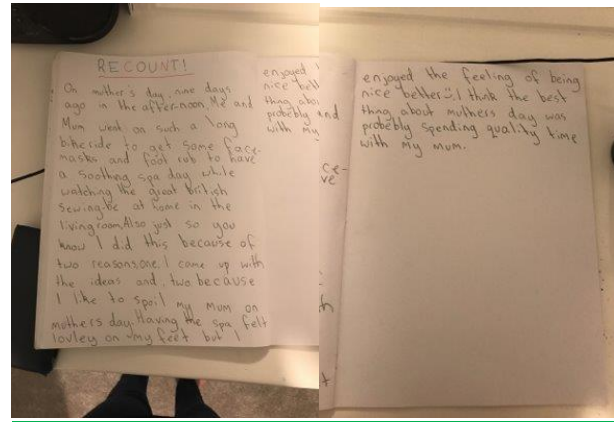 RECOUNT!
On mother's day, nine days
ago in the afternoon, Me and
Mum went on such a long
bikeride to get some face-
masks and foot rub to have
a soothing spa day while
watching the great british
sewing-be at home in the
livingroom. Also just so you
know I did this because of
two reasons, one. I came up with
the ideas and, two because
I like to spoil my Mum on
mothers day. Having the spa felt
lovley on my feet but I
enjoyed
nice bett
thing abo
probebly and
with my
enjoyed the feeling of being
nice better. I think the best
thing about mothers day was
probebly spending quality time
with my mum.